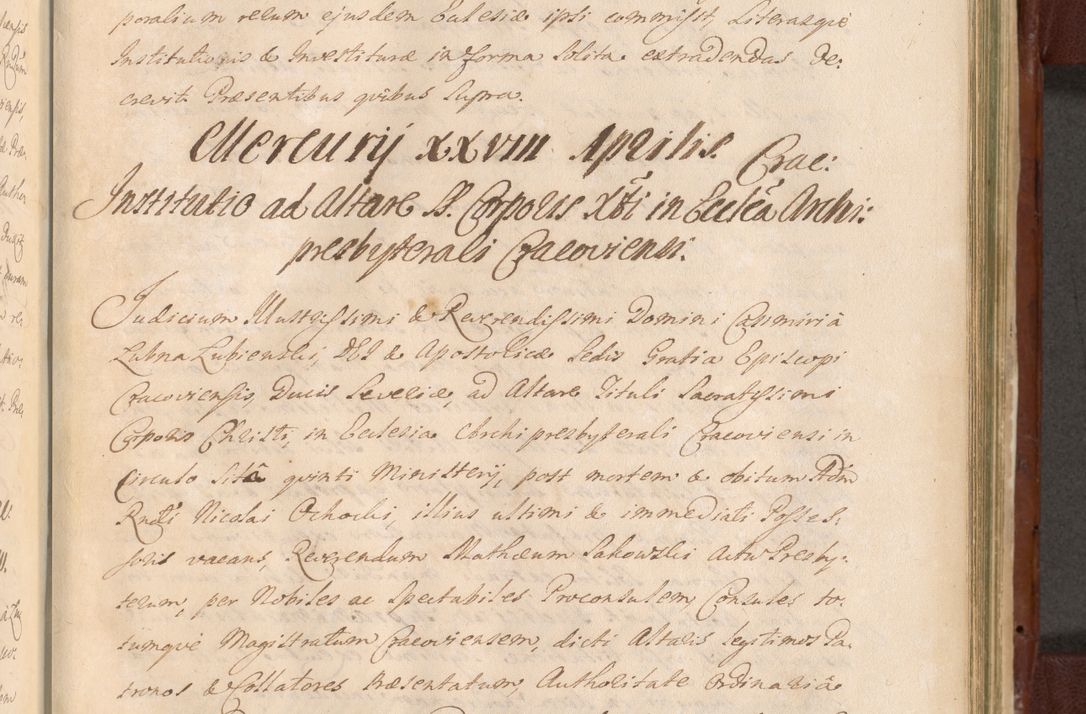 poralium rerum ejusdem Ecclesiæ ipsi commisit, Literasqve
Institutionis & Investituræ in forma solita extradendas De:
crevit. Præsentibus qvibus supra.
Mercurij XXVIII Aprilis. Crac:
Institutio ad Altare SS. Corporis Xti in Eccl̃a Archi:
presbyterali Cracoviensi.
Judicium Illustrissimi & Reverendissimi Domini Casimiri à
Lubna Lubienski, DEI & Apostolicæ Sedis Gratia Episcopi
Cracoviensis, Ducis Severiæ, ad Altare Tituli Sacratissimi
Corporis Christi, in Ecclesia Archipresbyterali Cracoviensi in
Circulo Sitâ qvinti Ministerij, post mortem & obitum Adm
Rndi Nicolai Ochocki, illius ultimi & immediati Posses:
soris vacans, Reverendum Mathæum Sakowski Actu Presby:
terum, per Nobiles ac Spectabiles Proconsulem, Consules to:
tumqve Magistratum Cracoviensem, dicti Altaris legitimos Pa:
tronos & Collatores Præsentatum, Authoritate Ordinariâ